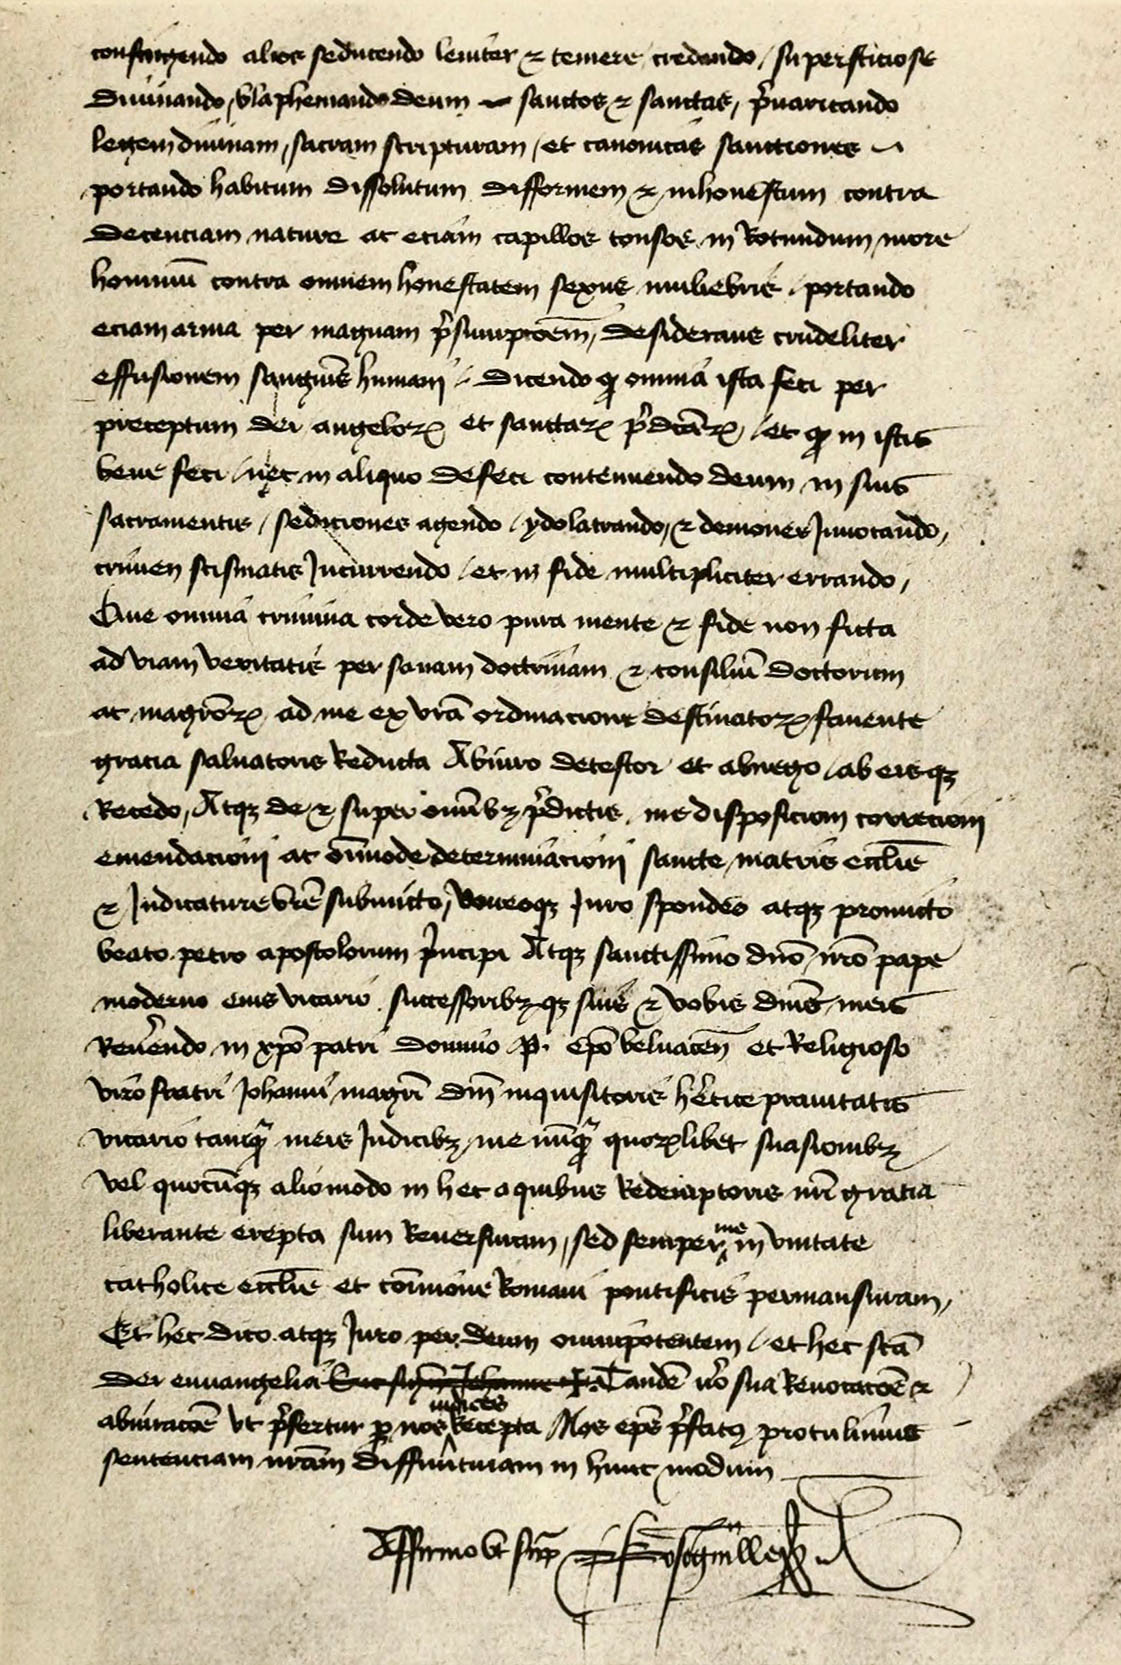 confingendo alios seducendo leviter & temere credendo / supersticiose
Divinando, blasphemando deum sanctos & sanctas, p̄varicando
legem divinam, sacram scripturam / et canonicas sanctiones
portando habitum dissolutum difformem & inhonestum contra
decenciam nature ac eciam capillos tonsos in Rotundum more
hominū contra omnem honestatem sexus muliebris / portando
eciam arma per magnam p̄sumpcoēm, desiderans crudeliter
effusionem sanguīs humani / Dicendo qȝ omnia ista feci per
preceptum dei angeloꝝ et sanctaꝝ p̄dcāꝝ, / et qȝ in istis
bene feci / nec in aliquo defeci contemnendo deum in suis
sacramentis / sediciones agendo / ydolatrando, & demones Invocando,
crimen scismatis Incurrendo / et in fide multipliciter errando,
Que omnia crimina corde vero pura mente & fide non ficta
ad viam veritatis per sanam doctrinam & consiliū doctorum
ac magrōꝝ ad me ex vrā ordinacione destinatoꝝ favente
gratia salvatoris Reducta Abiuro detestor et abnego / ab eisqȝ
Recedo, Atqȝ de & super omībȝ p̄dictis me disposicioni correctioni
emendacioni ac oīmode determinacioni sancte matris ecclīe
& Iudicature vrē submitto, voveoqȝ Iuro spondeo atqȝ promitto
beato petro apostolorum p̄ncipi Atqȝ sanctissimo dnō nrō pape
moderno eius vicario successoribȝqȝ suis & vobis dnīs meis
Rev̄endo in xpō patri domino P. epō belvaceñ et Religioso
viro fratri Iohanni magrī dnī inquisitoris h̄etice pravitatis
vicario tanqȝ meis Iudicibȝ me nūqȝ quoꝝlibet suasionibȝ
vel quocūqȝ alio modo in hec a quibus Redemptoris nrī gratia
liberante erepta sum Reversuram, sed semper me in unitate
catholice ecclīe et cōmūione Romani pontificis permansuram,
Et hec dico atqȝ Iuro per deum omnipotentem / et hec scā
dei euvangelia Tandē v̄o sua Revocacoē &
abiuracoē ut p̄fertur p nos iudices Recepta Nos epūs p̄fatꝰ protulimus
sentenciam nrām diffinitivam in hunc modum
Affirmo ut sup̄ Boscguille